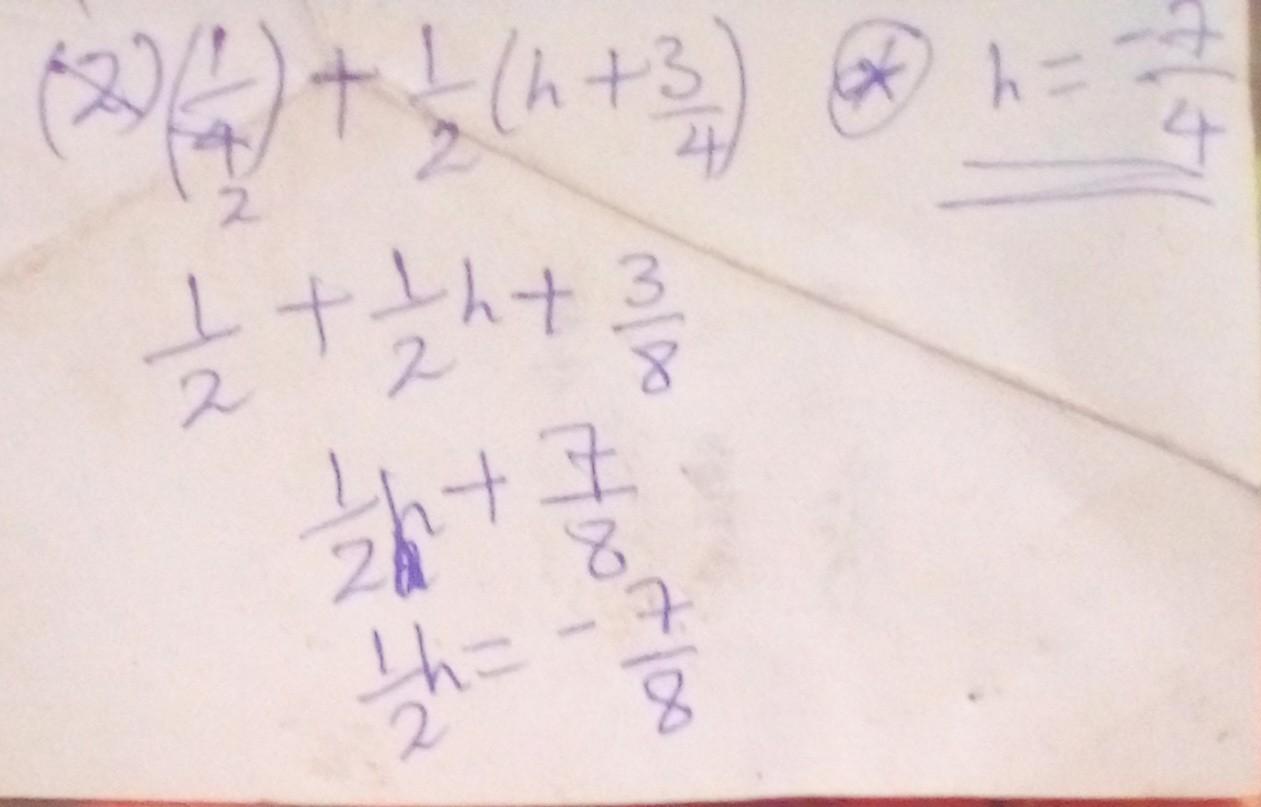 (2)(1/4) 2 + 1/2 (h + 3/4) * h = -7/4
1/2 + 1/2 h + 3/8
1/2 h + 7/8
1/2 h = - 7/8